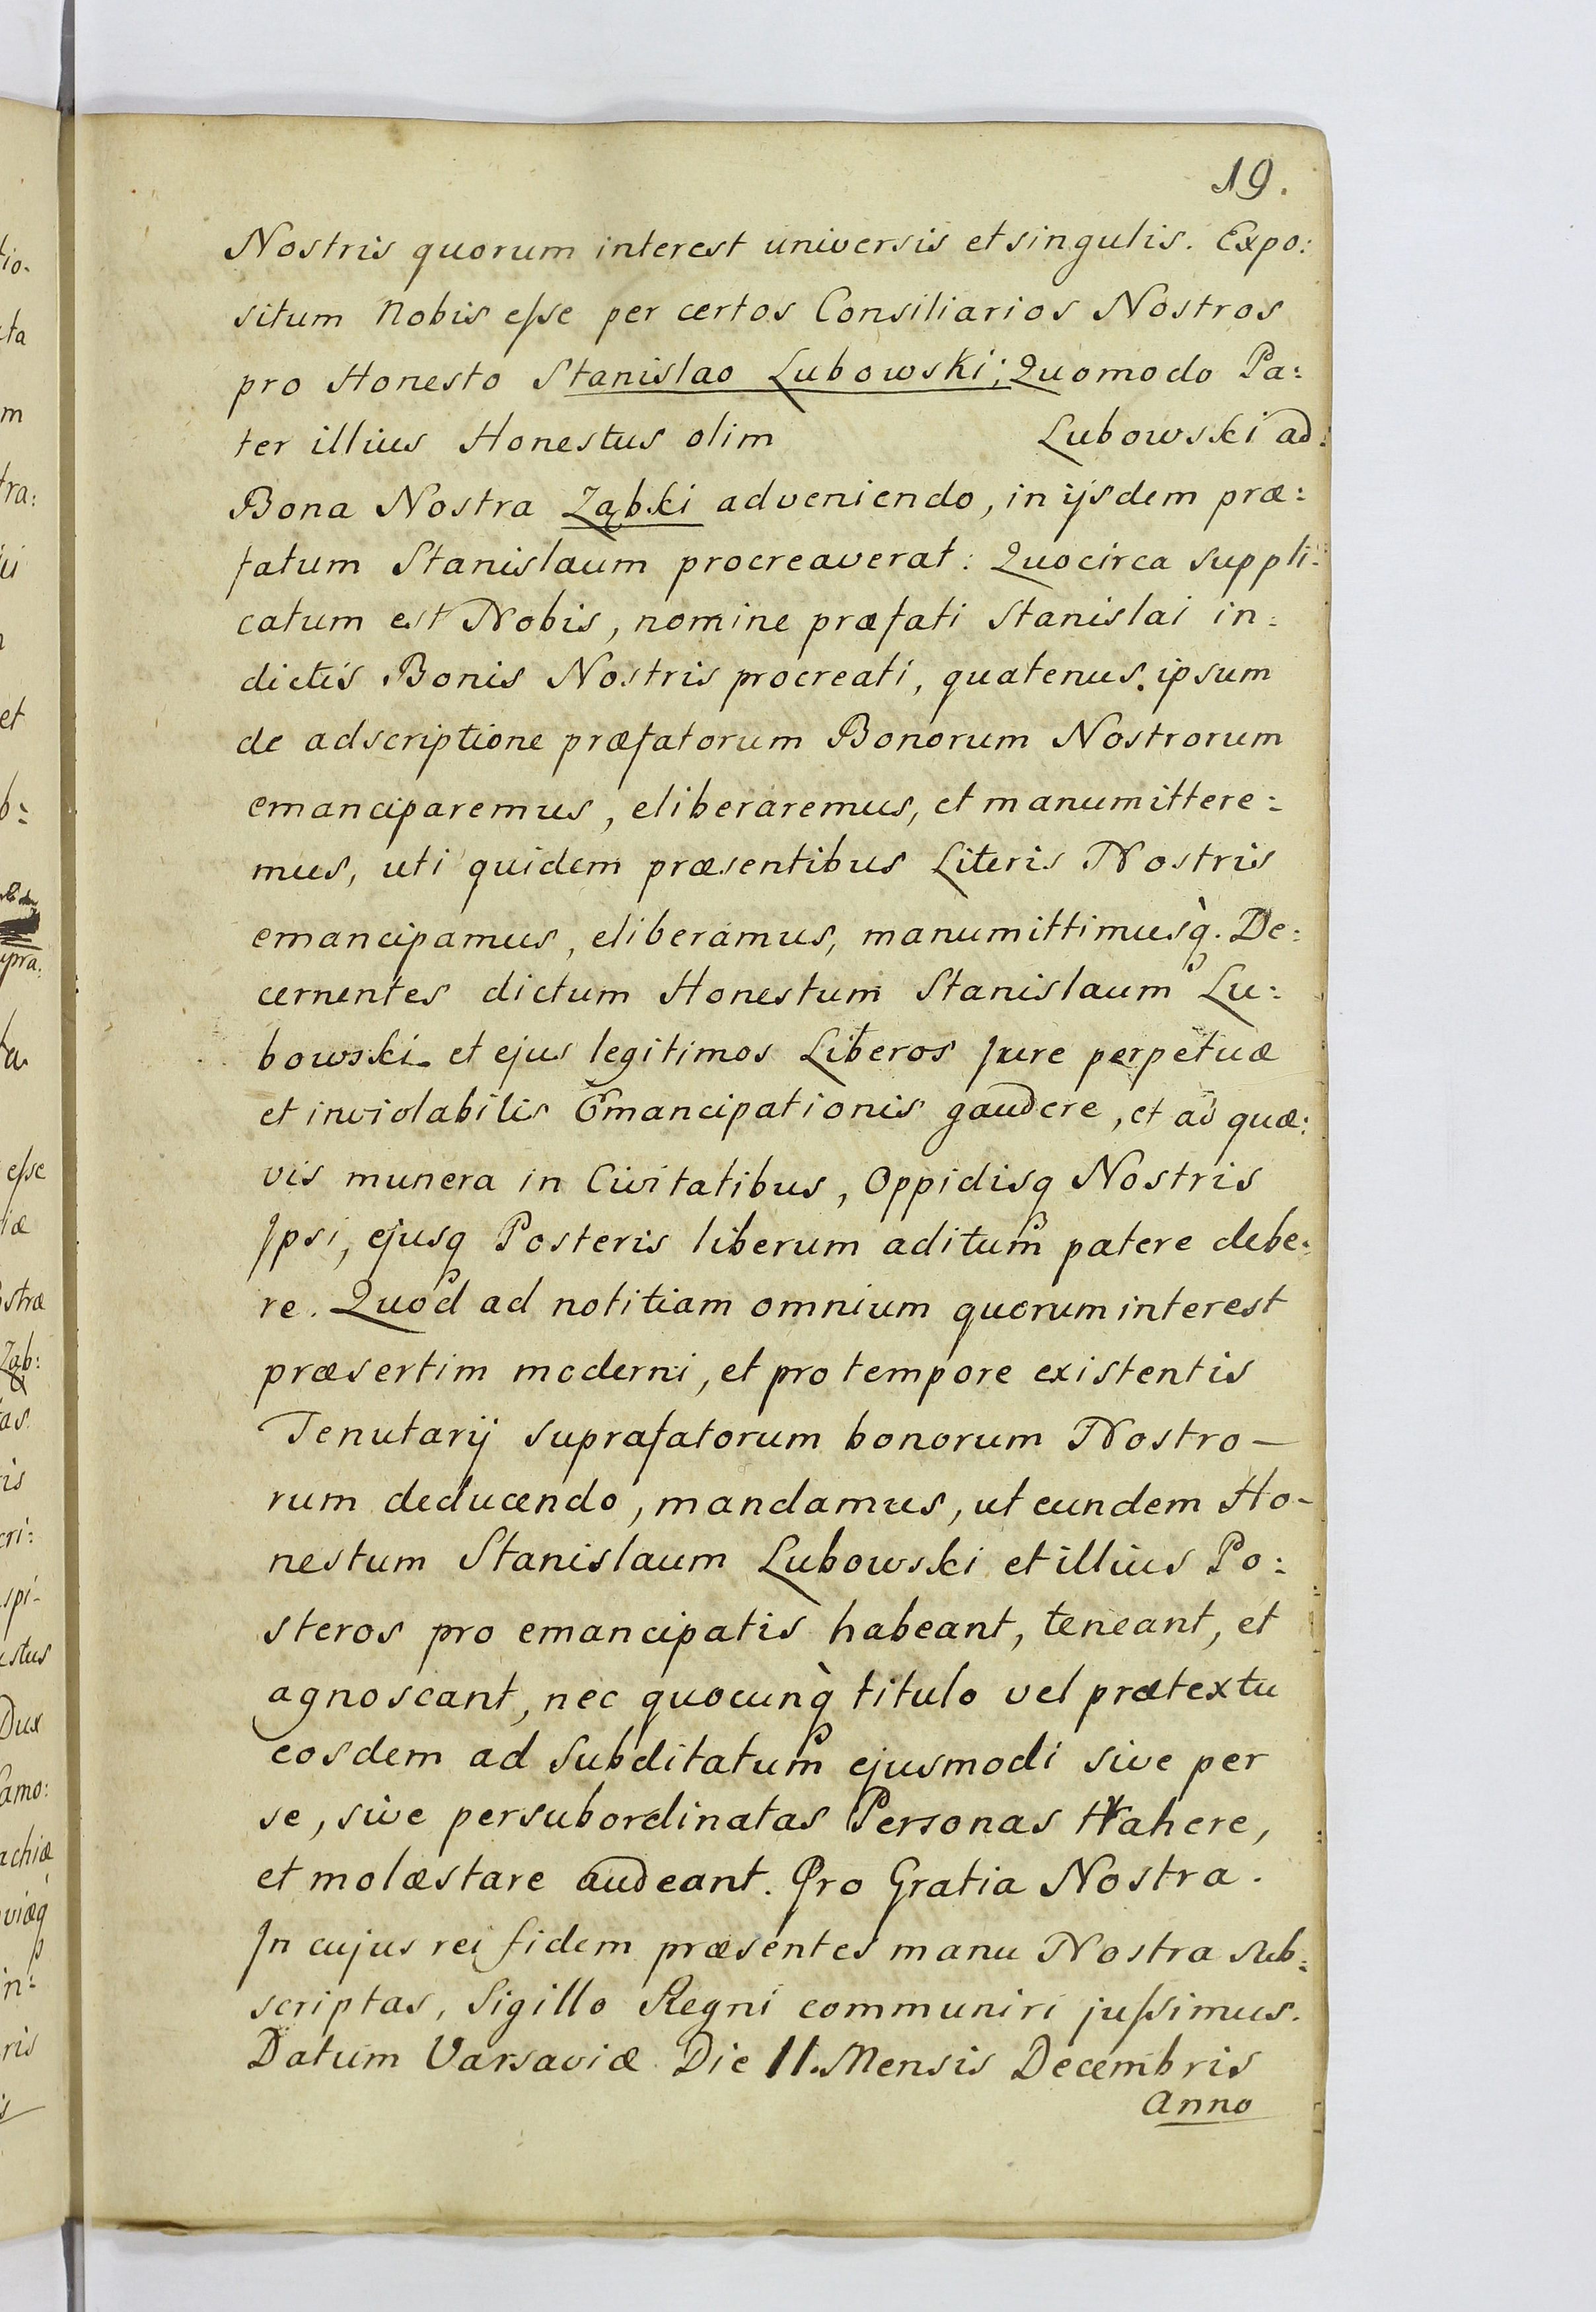 19.
Nostris quorum interest universis et singulis. Expo:
situm Nobis eſse per certos Consiliarios Nostros
pro Honesto Stanislao Lubowski; Quomodo Pa:
ter illius Honestus olim Lubowski ad:
Bona Nostra Ząbki adveniendo, in ijsdem præ:
fatum Stanislaum procreaverat: Quocirca suppli:
catum est Nobis, nomine præfati Stanislai in:
dictis Bonis Nostris procreati, quatenus ipsum
de adscriptione præfatorum Bonorum Nostrorum
emanciparemus, eliberaremus, et manumittere:
mus, uti quidem præsentibus Literis Nostris
emancipamus, eliberamus, manumittimusq̀. De:
cernentes dictum Honestum Stanislaum Lu:
bowski et ejus legitimos Liberos Jure perpetuæ
et inviolabilis Emancipationis gaudere, et ad quæ:
vis munera in Civitatibus, Oppidisq Nostris
Ipsi, ejusq Posteris liberum aditum patere debe:
re. Quod ad notitiam omnium quorum interest
præsertim moderni, et pro tempore existentis
Tenutarij suprafatorum bonorum Nostro-
rum deducendo, mandamus, ut eundem Ho-
nestum Stanislaum Lubowski et illius Po:
steros pro emancipatis habeant, teneant, et
agnoscant, nec quocunq̀ titulo vel prætextu
eosdem ad Subditatum ejusmodi sive per
se, sive per subordinatas Personas trahere,
et molæstare audeant. Pro Gratia Nostra.
In cujus rei fidem præsentes manu Nostra sub:
scriptas, Sigillo Regni communiri juſsimus.
Datum Varsaviæ Die 11. Mensis Decembris
Anno